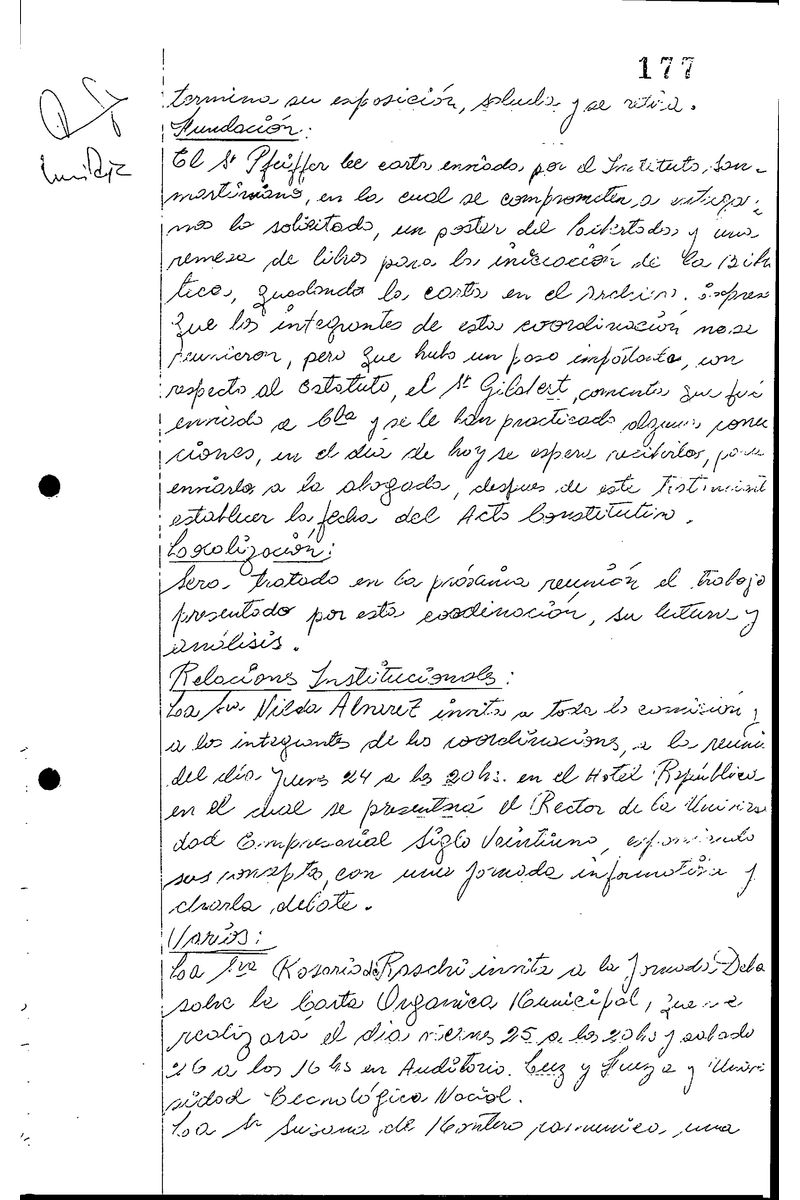 177
termina su exposición, saluda y se retira.
Fundación:
El Sr Pfeiffer lee carta enviada por el Instituto San-
martiniano, en la cual se comprometen a entregar-
nos lo solicitado, un poster del Libertador y una
remesa de libros para la iniciación de la Biblio
teca, quedando la carta en el Archivo. Expresa
que los integrantes de esta coordinación no se
reunieron, pero que hubo un paso importante, con
respecto al estatuto, el Sr Gilabert, comenta que fué
enviado a Cba y se le han practicado algunas correc
ciones, en el día de hoy se espera recibirlos, para
enviarlo a la abogada, despues de este
establecer la fecha del Acto Constitutivo.
Localización:
Será tratado en la próxima reunión el trabajo
presentado por esta coordinación, su lectura y
análisis.
Relaciones Institucionales:
La Sra Nilda Alvarez invita a toda la comisión y
a los integrantes de las coordinaciones, a la reuni
del día Jueves 24 a las 20 hs. en el Hotel República
en el cual se presentará el Rector de la Univers
dad Empresarial Siglo Veintiuno, exponiendo
sus conceptos, con una Jornada informativa y
charla debate.
Varios:
La Sra Rosario de Raschi invita a la Jornada Deba
sobre la Carta Organica Municipal, que se
realizará el día viernes 25 a las 20 hs y sabado
26 a las 16 hs en Auditorio Luz y Fuerza y Univer
sidad Tecnológica Nacial.
La Sra Susana de Montero comunica, una